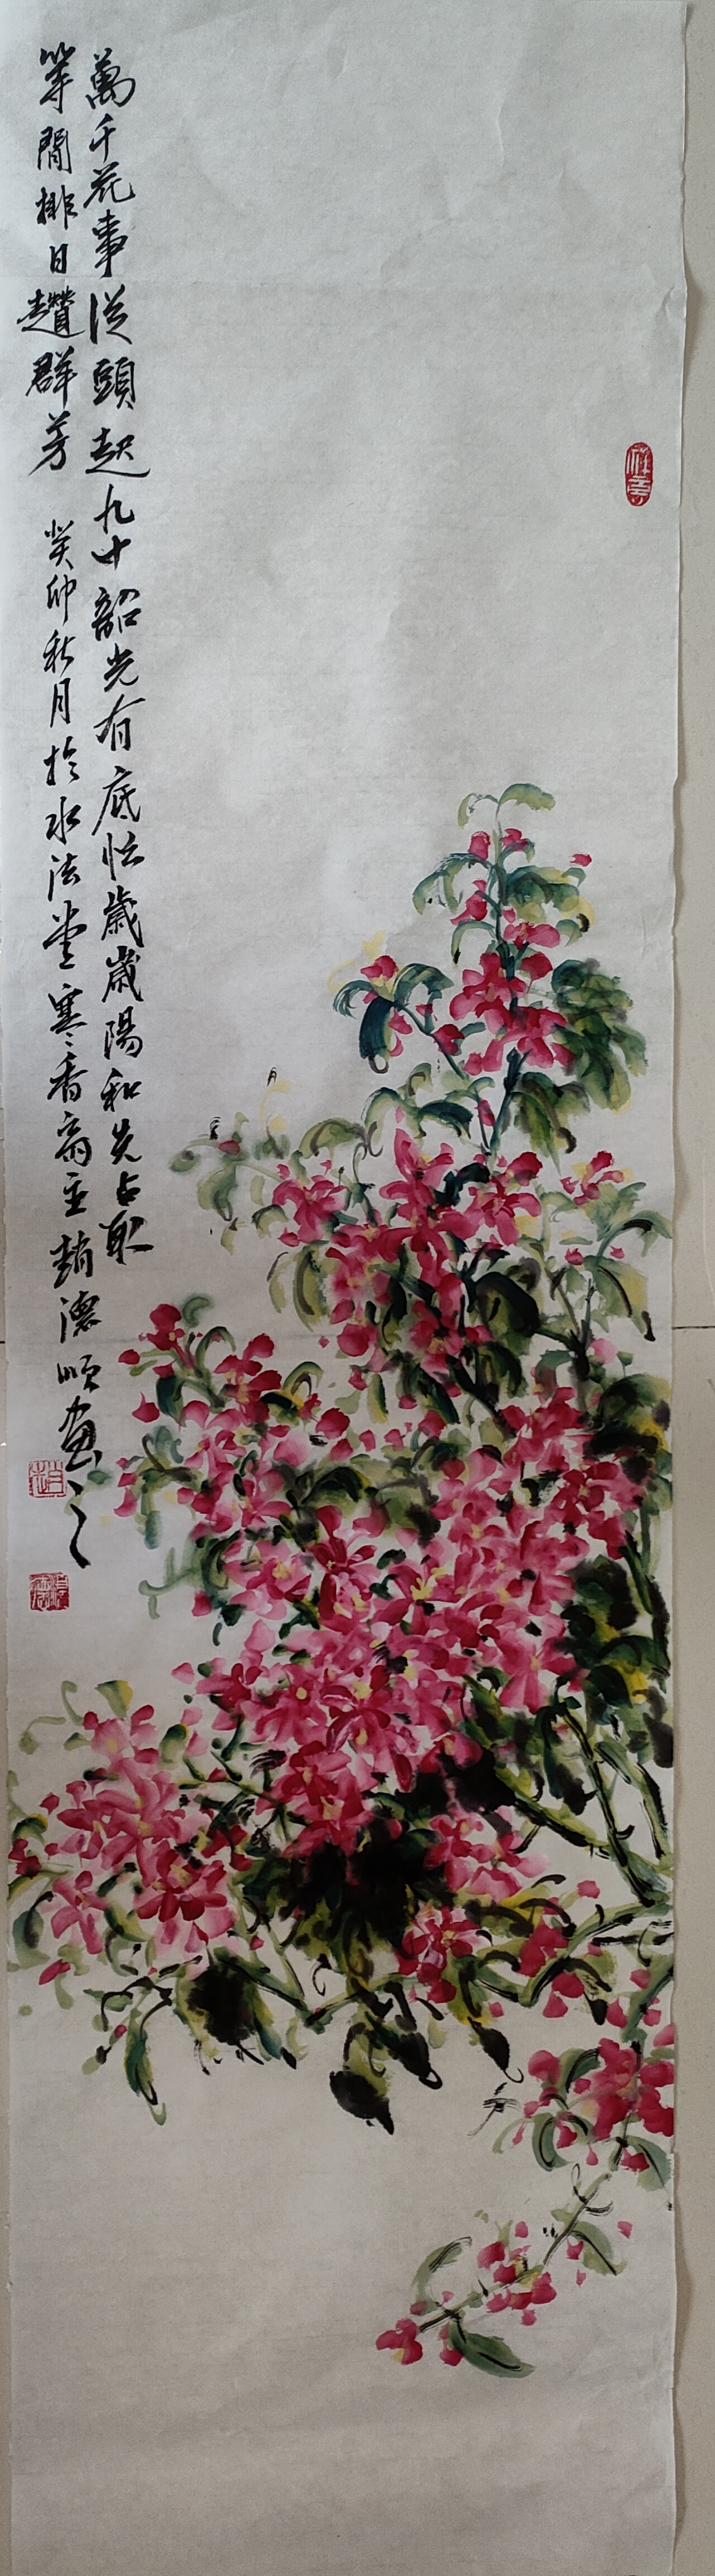 萬千花事從頭起九十韶光有底忙歲歲陽和先占取
等閒排日趲群芳 癸卯秋月於水法堂寒香斋主趙德順畫之